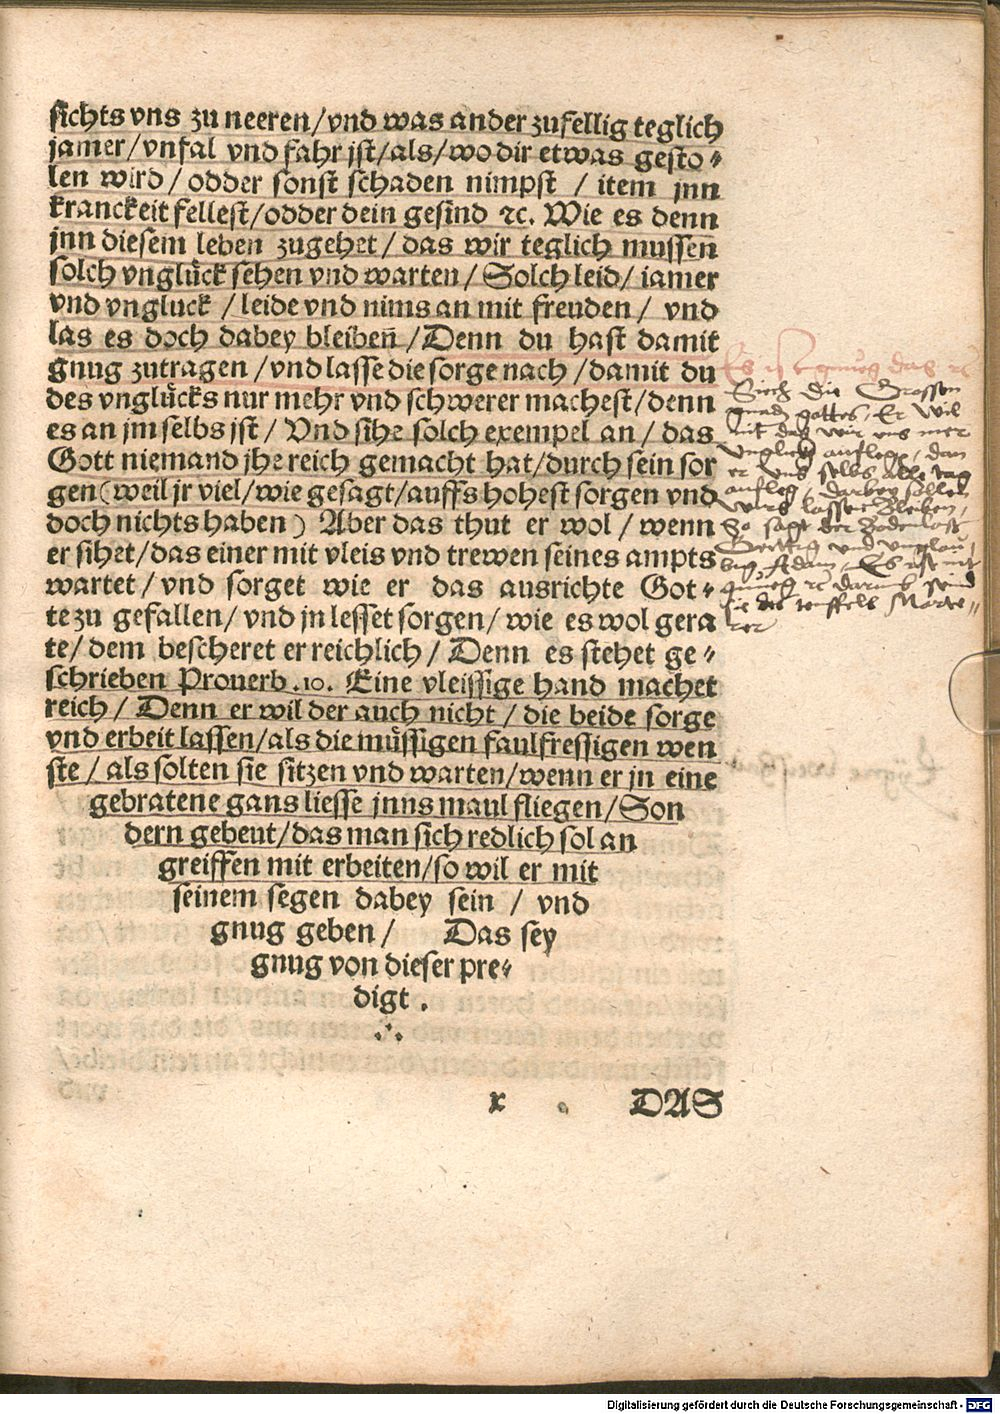 sichts vns zu neeren/vnd was ander zufellig teglich
jamer/vnfal vnd fahr jst/als/wo dir etwas gesto⸗
len wird/odder sonst schaden nimpst / item jnn
kranckeit fellest/odder dein gesind ꝛc. Wie es denn
jnn diesem leben zugehet/das wir teglich mussen
solch vnglück sehen vnd warten/Solch leid/iamer
vnd vngluck /leide vnd nims an mit freuden/ vnd
las es doch dabey bleibeñ/Denn du hast damit
gnug zutragen/vnd lasse die sorge nach/damit du
des vnglücks nur mehr vnd schwerer machest/denn
es an jm selbs jst/ Vnd sihe solch exempel an/das
Gott niemand jhe reich gemacht hat/durch sein sor
gen(weil jr viel/wie gesagt/auffs hohest sorgen vnd
doch nichts haben) Aber das thut er wol/wenn
er sihet/das einer mit vleis vnd trewen seines ampts
wartet/vnd sorget wie er das ausrichte Got⸗
te zu gefallen/vnd jn lesset sorgen/wie es wol gera
te/dem bescheret er reichlich/Denn es stehet ge⸗
schrieben Prouerb.10. Eine vleissige hand machet
reich/Denn er wil der auch nicht/die beide sorge
vnd erbeit lassen/als die müssigen faulfressigen wen
ste/als solten sie sitzen vnd warten/wenn er jn eine
gebratene gans liesse jnns maul fliegen/Son
dern gebeut/das man sich redlich sol an
greiffen mit erbeiten/so wil er mit
seinem segen dabey sein / vnd
gnug geben/ Das sey
gnug von dieser pre⸗
digt.
x DAS
Es ist gnug das ꝛc
Siech die Grossen
gnad gottes, Er wil
nit das wir uns mer
Unglick aufleg, dan
er uns selbs alle tag
aufleg, darbey sollen
wirs lassen bleiben,
So sagt der
und unglau
big Adam, Es ist nit
gnueg ꝛc darumb seind
sie des teuffels Marte⸗
rer
Digitalisierung gefördert durch die Deutsche Forschungsgemeinschaft - DFG